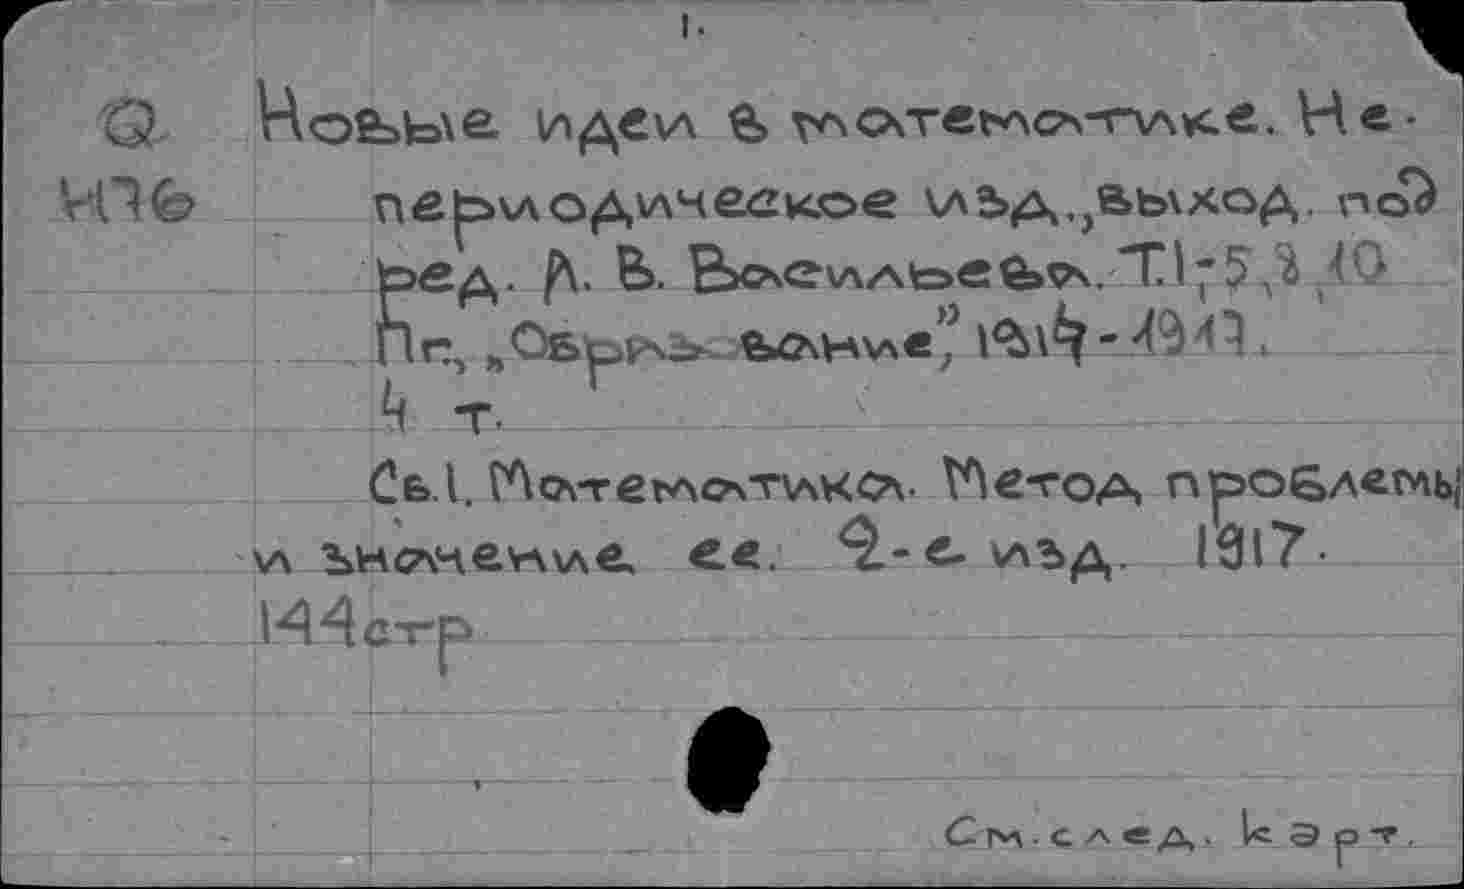 1.
Q Новые идеи в математике. Не-
И76 периодическое изд., выход. под
ред. А. В. Васильева. Т.1-5, 8, 10
Пг., „Образование", 1914-1917.
4 т.
Сб.1. Математика. Метод, проблемы
и значение ее. 2-е изд. 1917.
144стр
См. след. карт.